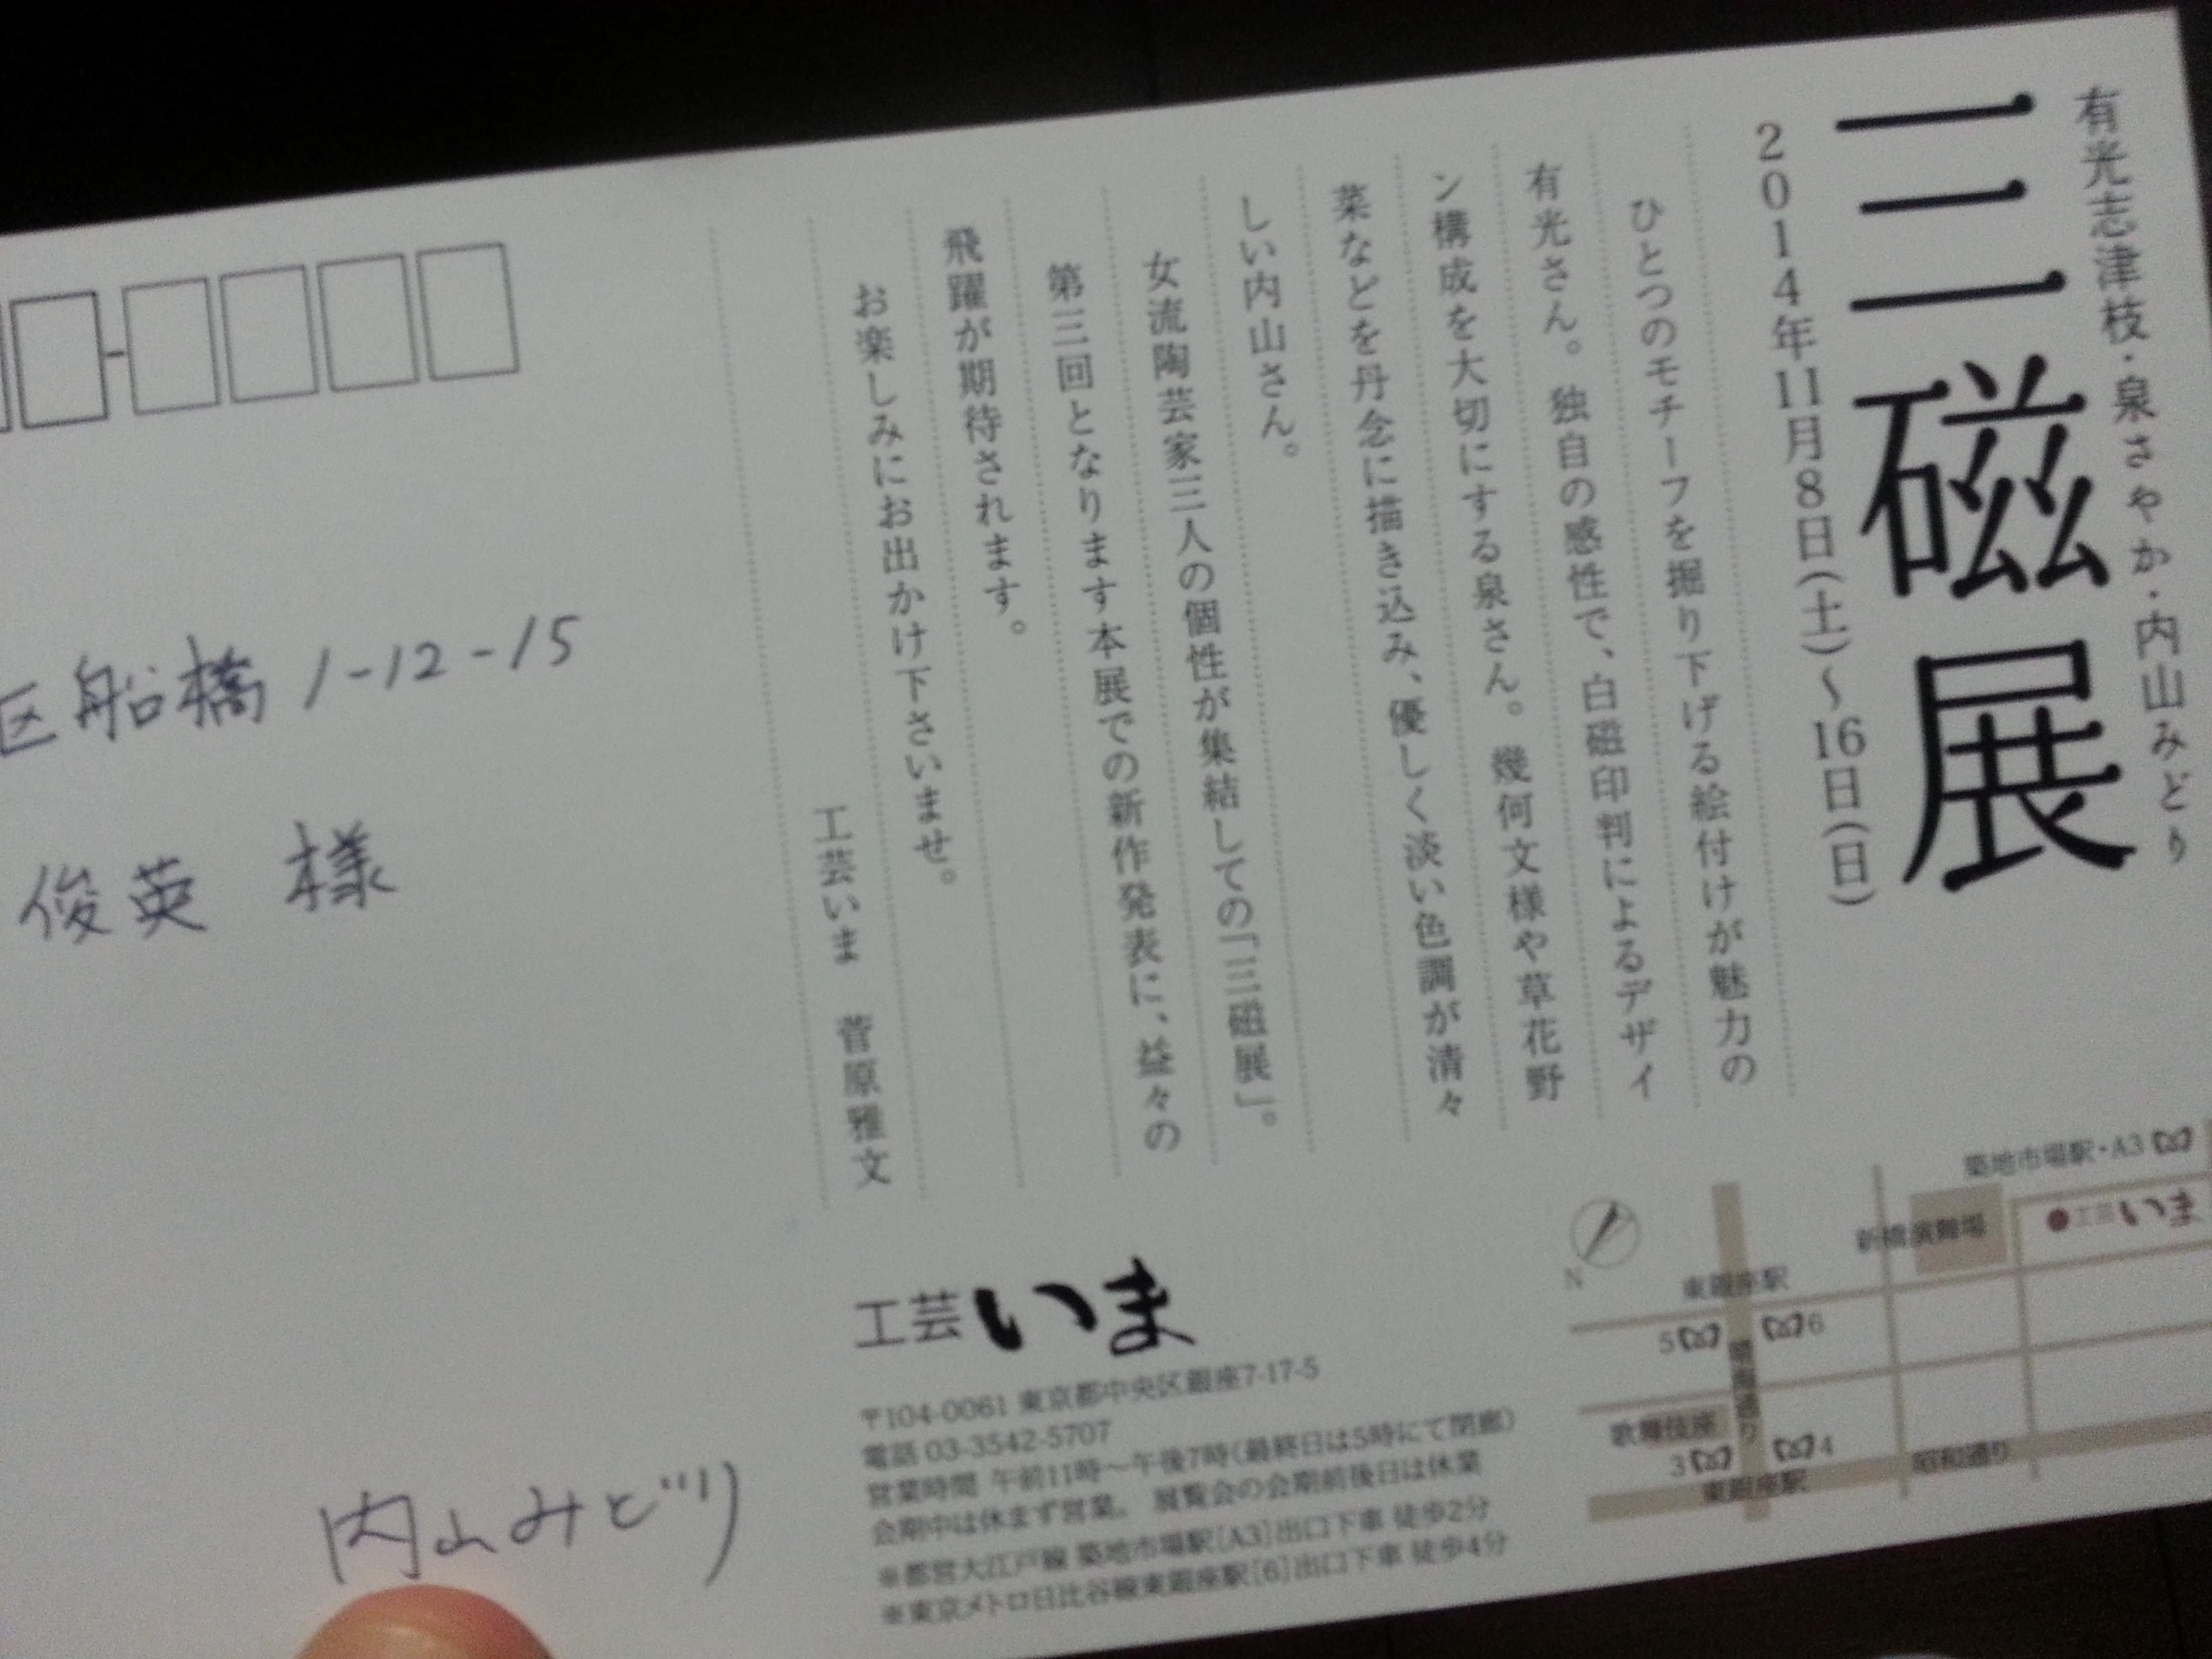 有光志津枝・泉さやか・内山みどり
三磁展
2014年11月8日(土)〜16日(日)
ひとつのモチーフを掘り下げる絵付けが魅力の
有光さん。独自の感性で、白磁印判によるデザイ
ン構成を大切にする泉さん。幾何文様や草花野
菜などを丹念に描き込み、優しく淡い色調が清々
しい内山さん。
女流陶芸家三人の個性が集結しての「三磁展」。
第三回となります本展での新作発表に、益々の
飛躍が期待されます。
お楽しみにお出かけ下さいませ。
工芸いま 菅原雅文
工芸いま
〒104-0061 東京都中央区銀座7-17-5
電話 03-3542-5707
営業時間 午前11時〜午後7時(最終日は5時にて閉廊)
会期中は休まず営業。 展覧会の会期前後日は休業
※都営大江戸線 築地市場駅[A3]出口下車 徒歩2分
※東京メトロ日比谷線東銀座駅[6]出口下車 徒歩4分
築地市場駅・A3
工芸いま
新橋演舞場
N
東銀座駅
5
6
晴海通り
歌舞伎座
3
4
東銀座駅
昭和通り
区船橋1-12-15
俊英 様
内山みどり